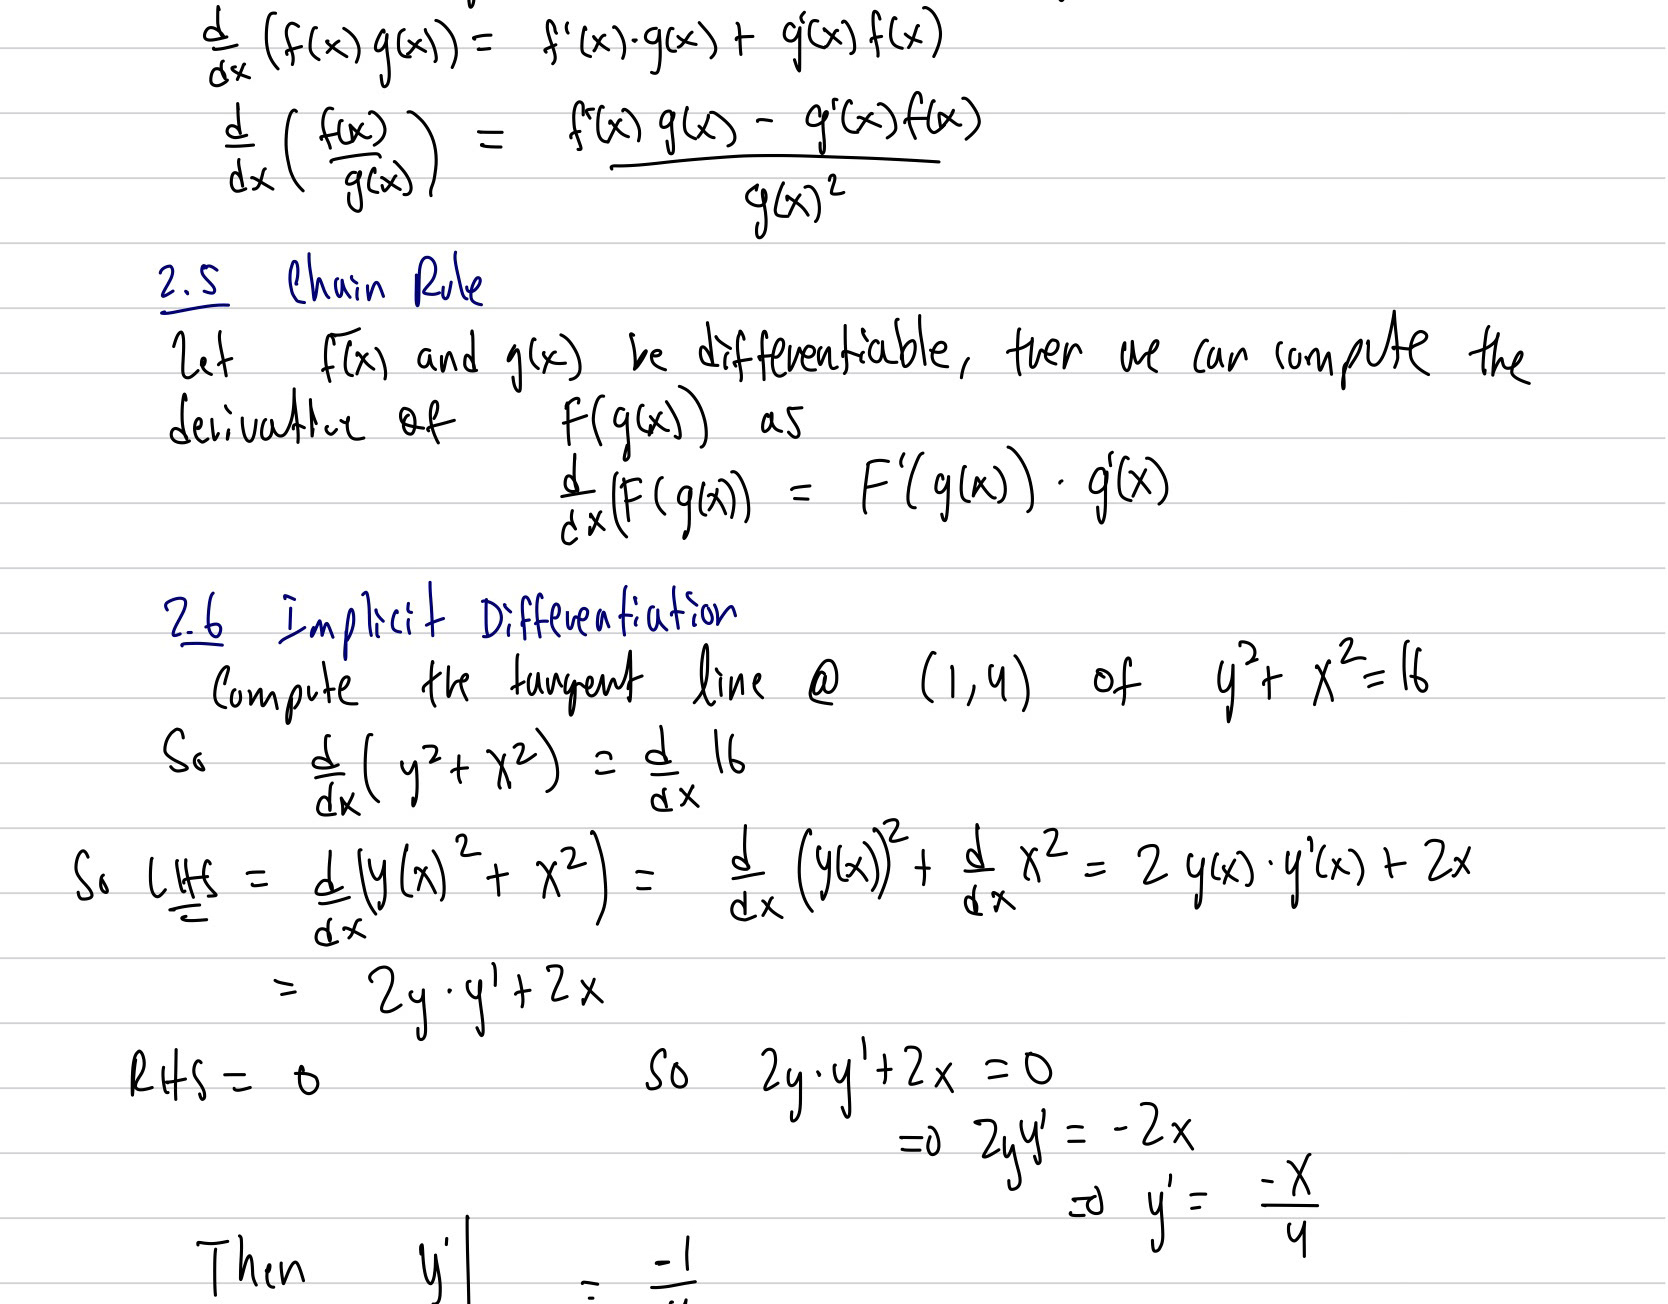 d/dx (f(x) g(x)) = f'(x)·g(x) + g'(x) f(x)
d/dx (f(x)/g(x)) = (f'(x) g(x) - g'(x) f(x))/g(x)²
2.5 Chain Rule
Let f(x) and g(x) be differentiable, then we can compute the
derivative of F(g(x)) as
d/dx (F(g(x)) = F'(g(x)) · g'(x)
2.6 Implicit Differentiation
Compute the tangent line @ (1,4) of y² + x² = 16
So d/dx (y² + x²) = d/dx 16
So LHS = d/dx (y(x)² + x²) = d/dx (y(x))² + d/dx x² = 2 y(x)·y'(x) + 2x
= 2y·y' + 2x
RHS = 0 So 2y·y' + 2x = 0
⇒ 2yy' = -2x
⇒ y' = -x/y
Then y'| = -1